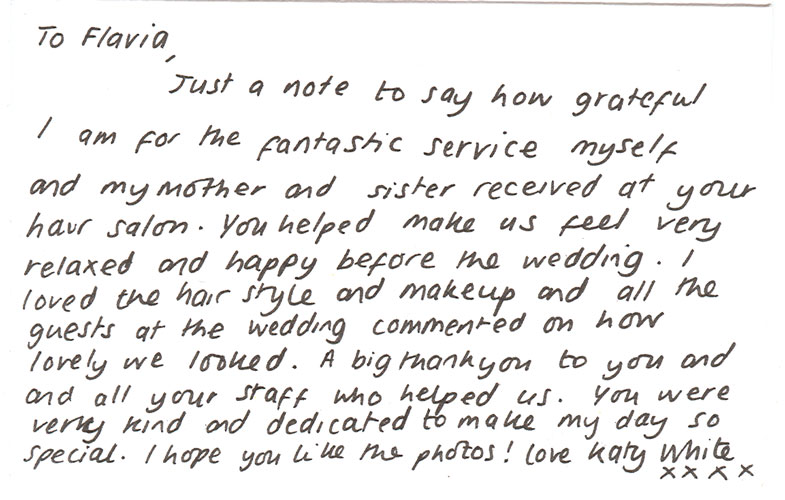 To Flavia,
Just a note to say how grateful
I am for the fantastic service myself
and my mother and sister received at your
hair salon. You helped make us feel very
relaxed and happy before the wedding. I
loved the hair style and makeup and all the
guests at the wedding commented on how
lovely we looked. A big thankyou to you and
and all your staff who helped us. You were
very kind and dedicated to make my day so
special. I hope you like the photos! love Katy White
xxxx